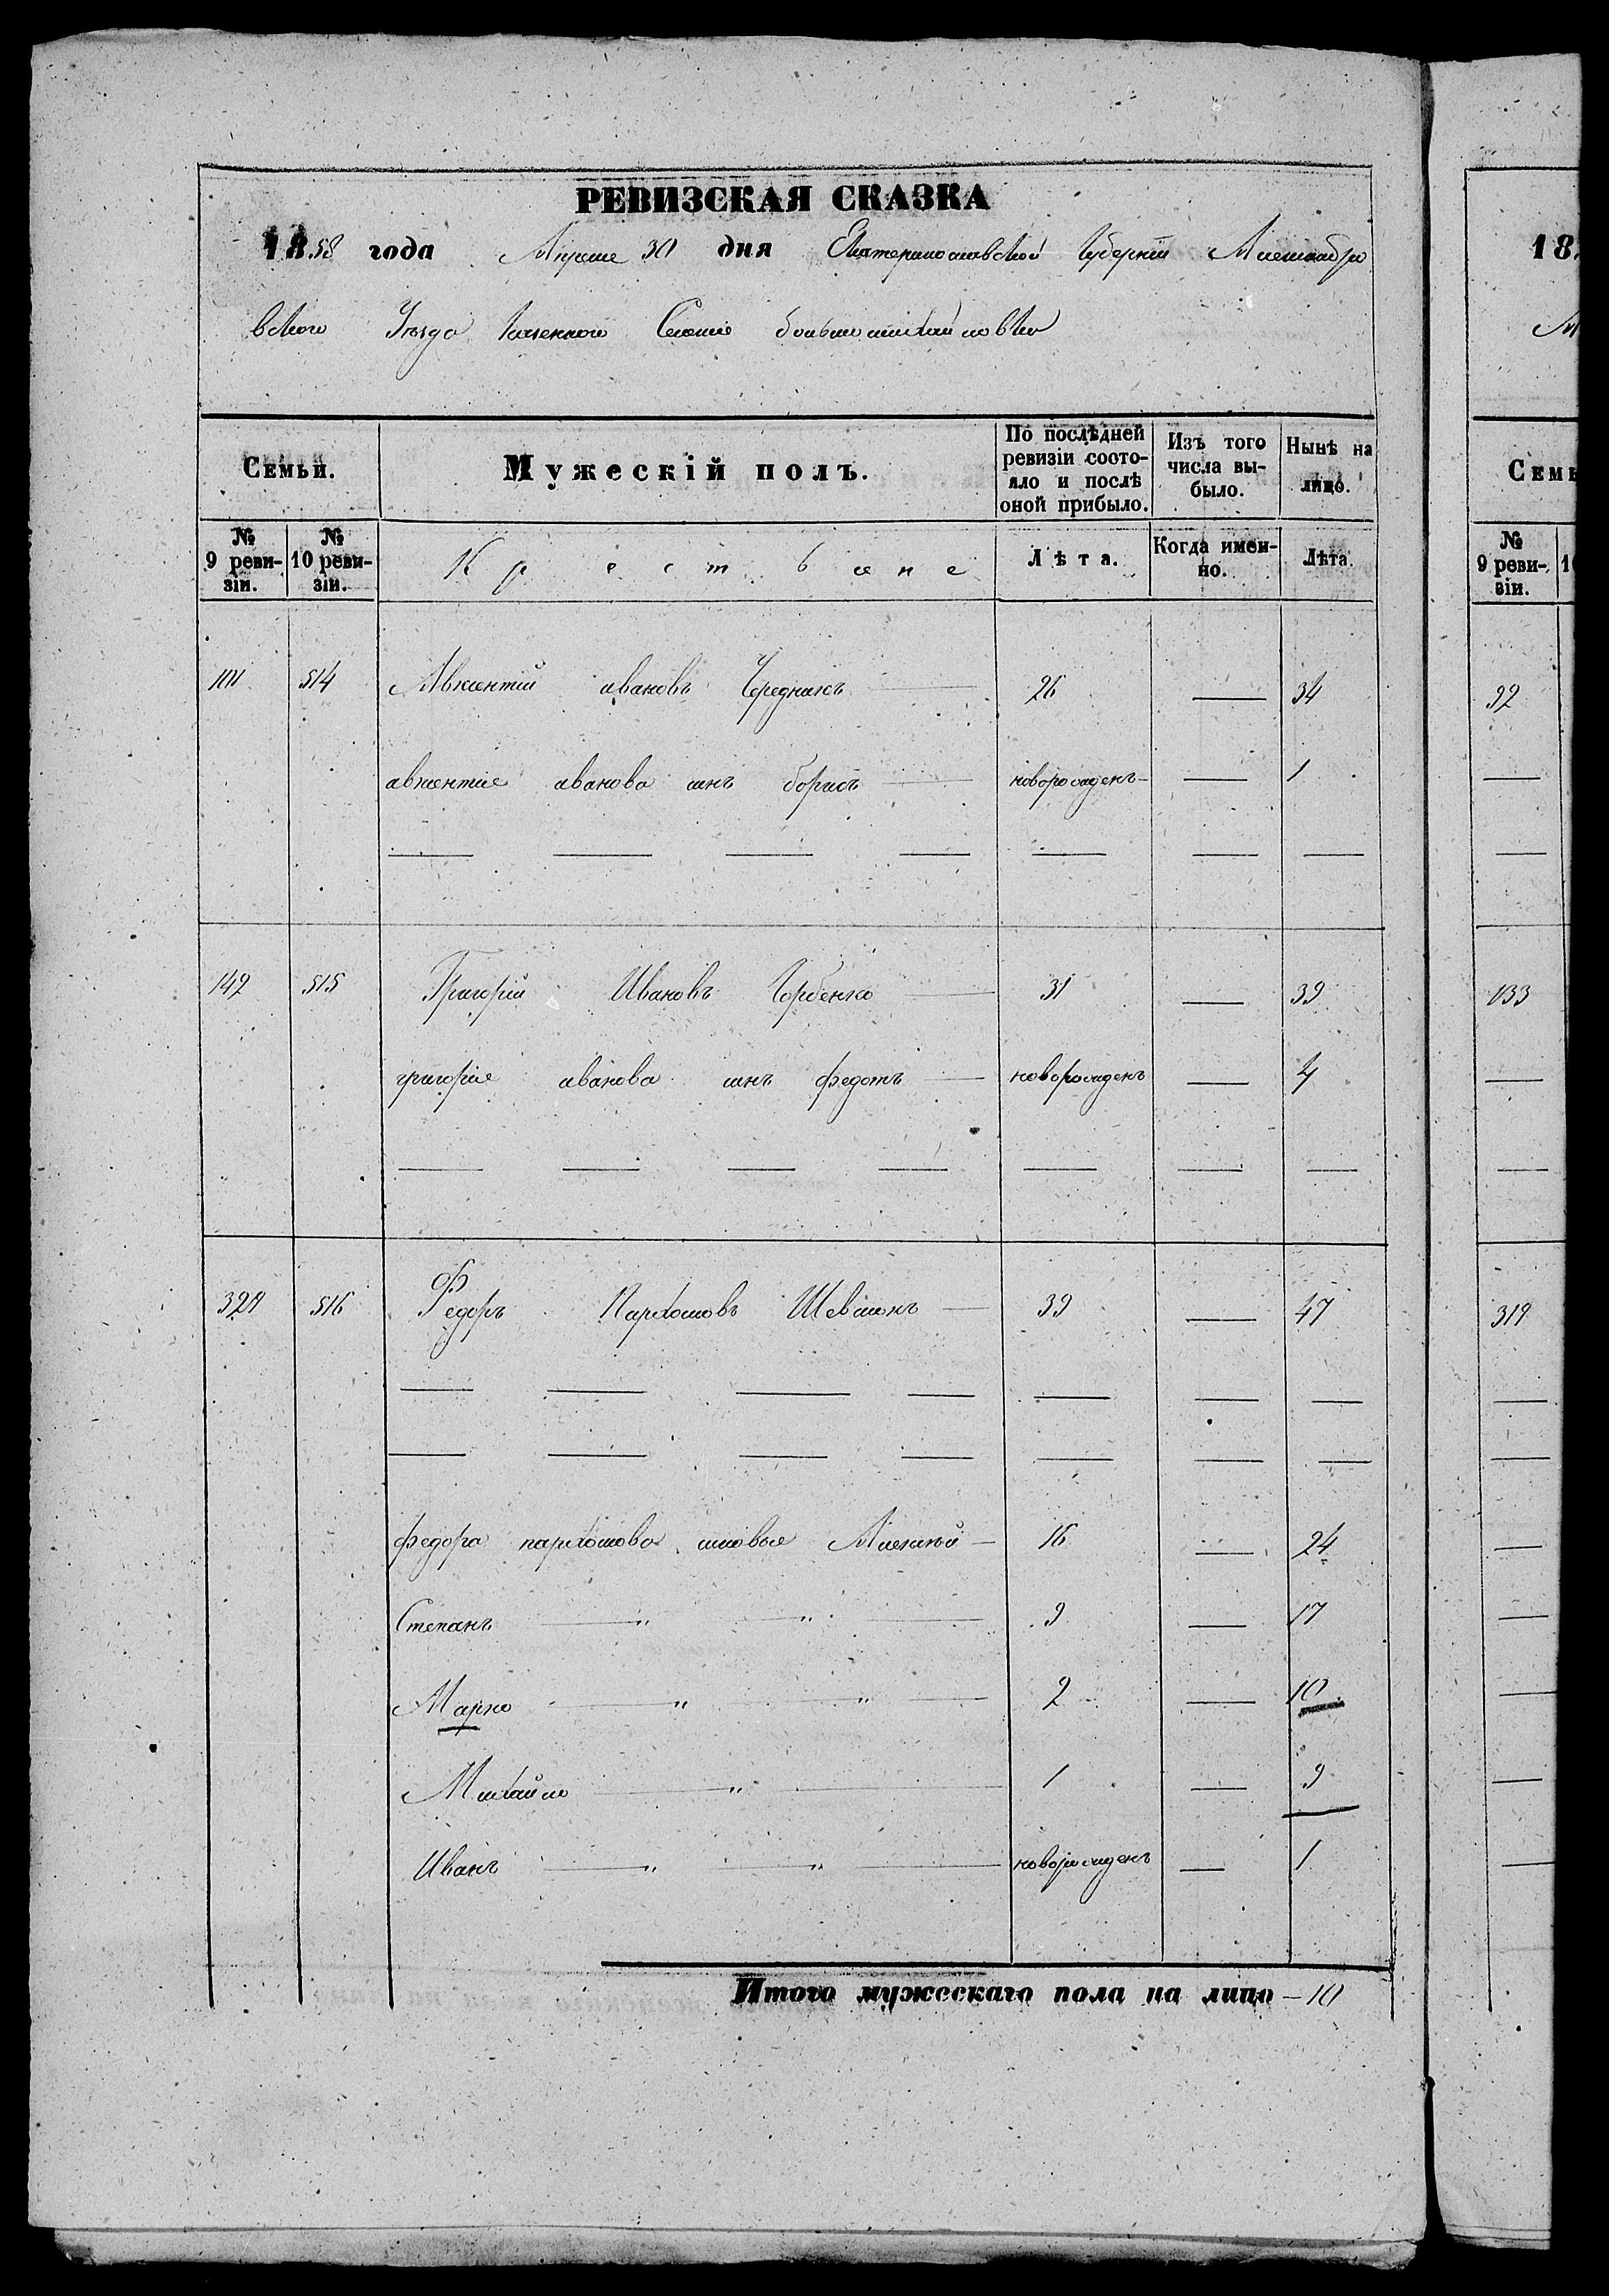 РЕВИЗСКАЯ СКАЗКА
1858 года Апреле 30 дня Екатеринославской Губерніи Александро
вского Уезда Казенного Селенія большемихайловки
Семьи. Мужескій полъ. По послѣдней ревизіи состояло и послѣ оной прибыло. Изъ того числа выбыло. Нынѣ на лицо.
№ 9 ревизіи. № 10 ревизіи. Крестьяне Лѣта. Когда именно. Лѣта.
101 514 Авксентій ивановъ Чередникъ 26 — 34
авксентіе иванова сынъ борисъ новорожденъ — 1
149 515 Григорій Ивановъ Горбенко 31 — 39
григоріе иванова сынъ федотъ новорожденъ — 4
329 516 Федоръ Пархомовъ 39 — 47
федора пархомова сыновье Алексей 16 — 24
Степанъ — " — " — 9 — 17
Марко — " — " — 2 — 10
Михайло — " — 1 — 9
Иванъ — " — " — новорожденъ — 1
Итого мужескаго пола на лицо — 10
18
Семь
№ 9 ревизіи. 1
92
133
319